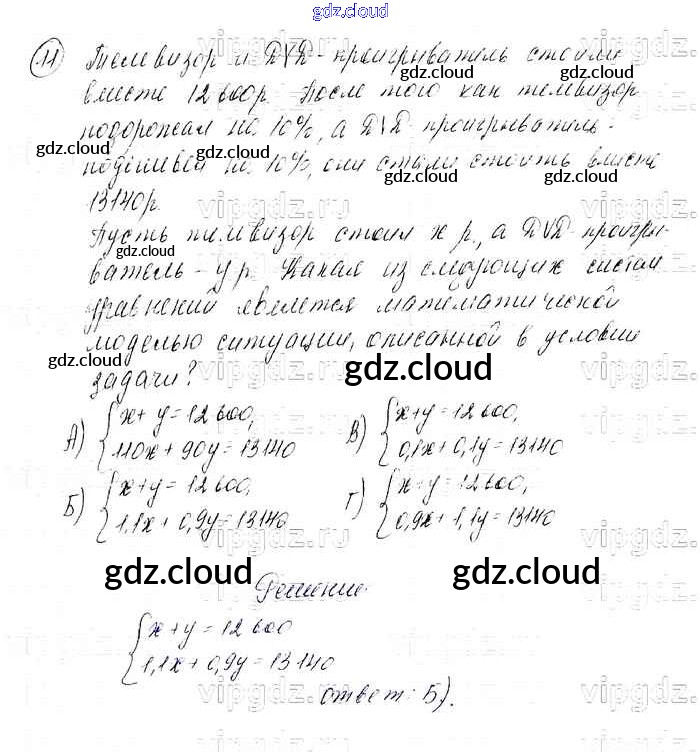 gdz.cloud
11 Телевизор и DVD-проигрыватель стоили
вместе 12 600р. После того как телевизор
подорожал на 10%, а DVD проигрыватель
подешевел на 10%, они стали стоить вместе
13140р.
Пусть телевизор стоил х р., а DVD проигры-
ватель - у р. Какая из следующих систем
уравнений является математической
моделью ситуации, описанной в условии
задачи?
А) { x + y = 12 600,
110x + 90y = 13140
В) { x + y = 12 600,
0,1x + 0,1y = 13140
Б) { x + y = 12 600,
1,1x + 0,9y = 13140
Г) { x + y = 12 600,
0,9x + 1,1y = 13140
Решение:
{ x + y = 12 600
1,1x + 0,9y = 13140
ответ: Б).